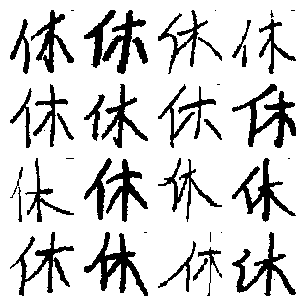 休休休休
休休休休
休休休休
休休休休